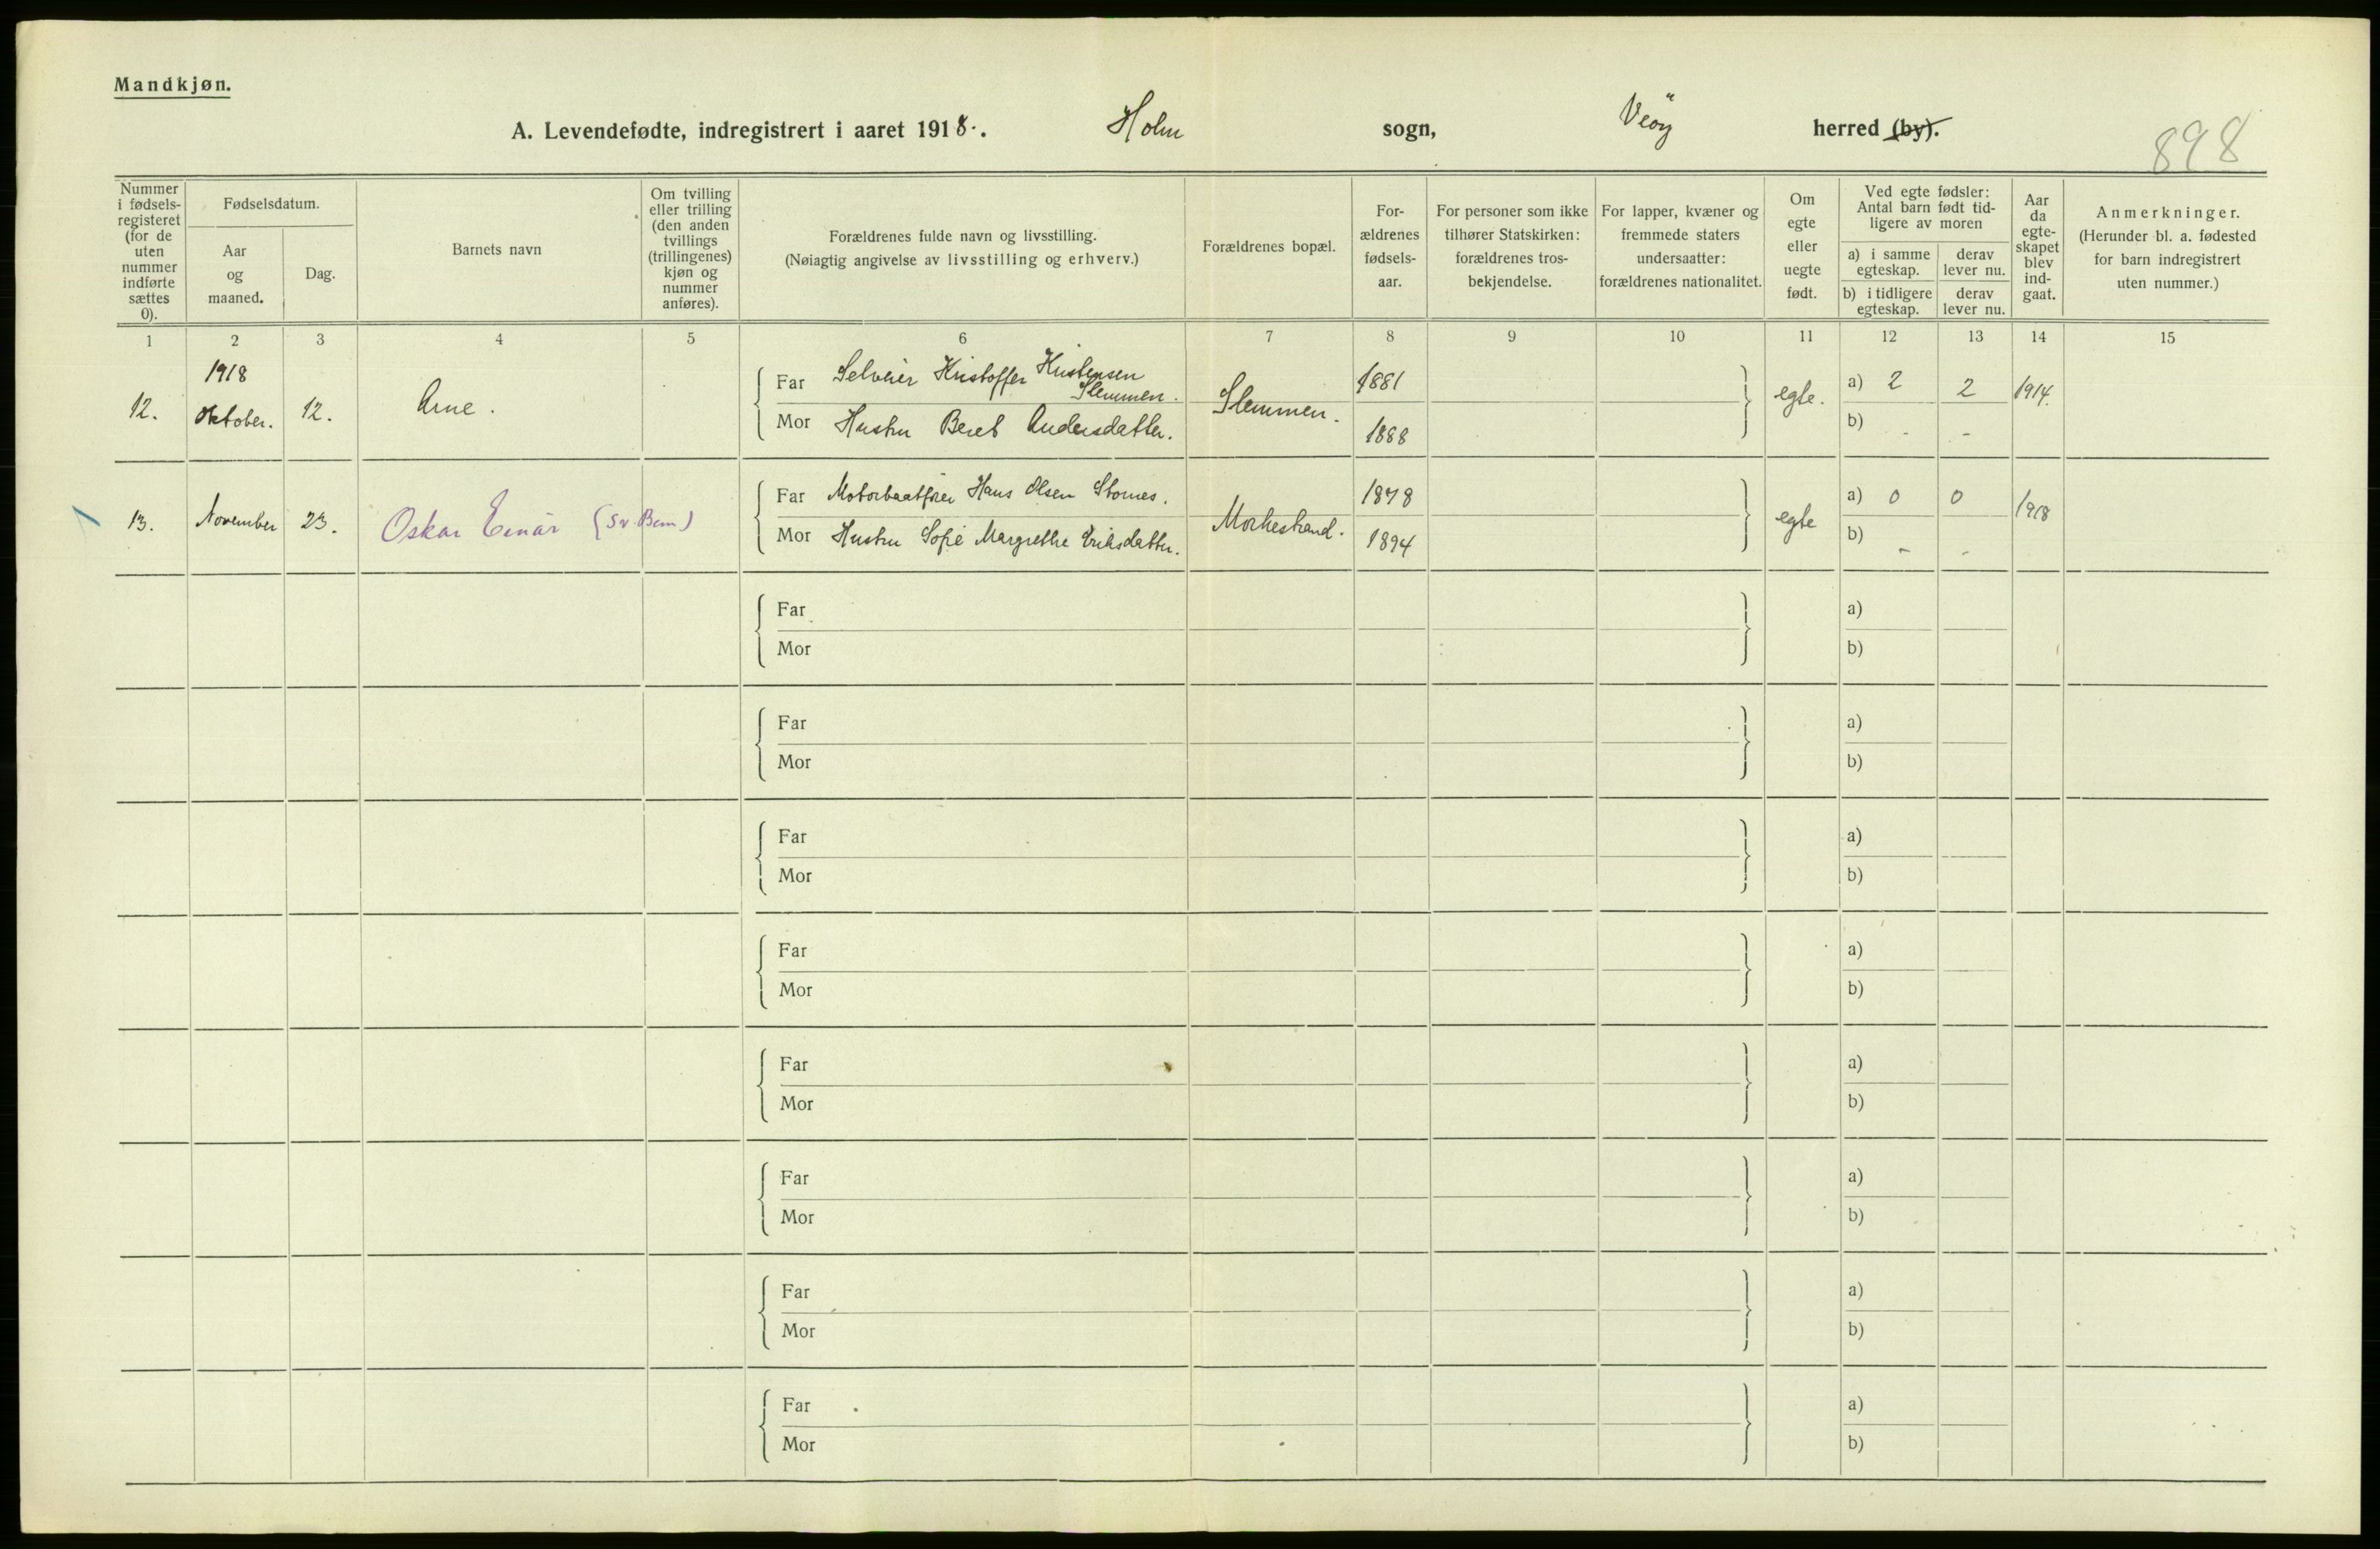 Mandkjøn.
A. Levendefødte, indregistrert i aaret 1918. Holm sogn, Veöy herred (by).
898
Nummer i fødsels-registeret (for de uten nummer indførte sættes 0).
Fødselsdatum.
Aar og maaned.
Dag.
Barnets navn
Om tvilling eller trilling (den anden tvillings (trillingenes) kjøn og nummer anføres).
Forældrenes fulde navn og livsstilling.
(Nøiagtig angivelse av livsstilling og erhverv.)
Forældrenes bopæl.
For-ældrenes fødsels-aar.
For personer som ikke tilhører Statskirken: forældrenes tros-bekjendelse.
For lapper, kvæner og fremmede staters undersaatter: forældrenes nationalitet.
Om egte eller uegte født.
Ved egte fødsler: Antal barn født tid-ligere av moren
a) i samme egteskap.
derav lever nu.
b) i tidligere egteskap.
derav lever nu.
Aar da egte-skapet blev ind-gaat.
Anmerkninger.
(Herunder bl. a. fødested for barn indregistrert uten nummer.)
1 2 3 4 5 6 7 8 9 10 11 12 13 14 15
12. 1918 Oktober. 12. Arne.
Far Selveier Kristoffer Kristensen Slemmen. 1881
Mor Hustru Beret Andersdatter. 1888
Slemmen. egte. a) 2 2 1914.
b) - -
13. November 23. Oskar Einar
Far Motorbaatfører Hans Olsen Stornes. 1878
Mor Hustru Sofie Margrethe Eriksdatter. 1894
egte a) 0 0 1918
b) - -
Far a)
Mor b)
Far a)
Mor b)
Far a)
Mor b)
Far a)
Mor b)
Far a)
Mor b)
Far a)
Mor b)
Far a)
Mor b)
Far a)
Mor b)